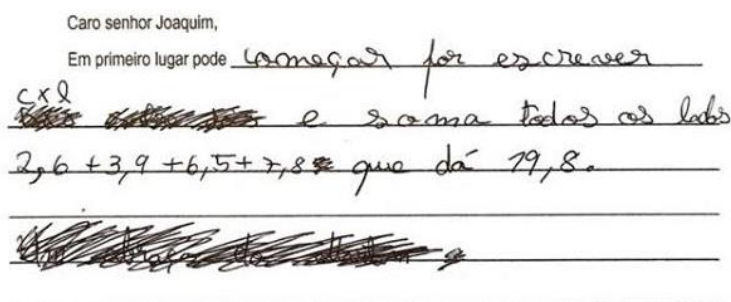 Caro senhor Joaquim,
Em primeiro lugar pode começar por escrever
cxl
e soma todos os lados
2,6 + 3,9 + 6,5 + 7,8 que dá 19,8.